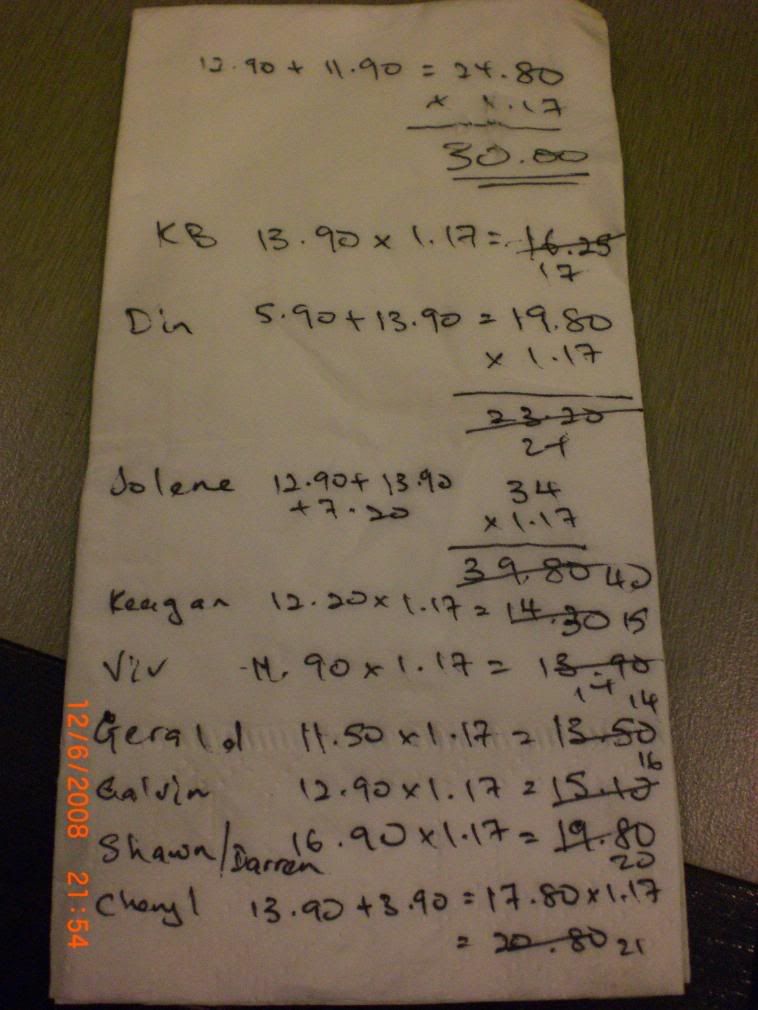 12.90 + 11.90 = 24.80
x 1.17
30.00
KB 13.90 x 1.17 = 16.25
17
Din 5.90 + 13.90 = 19.80
x 1.17
23.20
24
Jolene 12.90 + 13.90 34
+ 7.20 x 1.17
39.80 40
Keagan 12.20 x 1.17 = 14.30 15
Viv 11.90 x 1.17 = 13.90
14
Gerald 11.50 x 1.17 = 13.50 14
Galvin 12.90 x 1.17 = 15.10 16
Shawn/Darren 16.90 x 1.17 = 19.80
20
Cheryl 13.90 + 3.90 = 17.80 x 1.17
= 20.80 21
12/6/2008 21:54